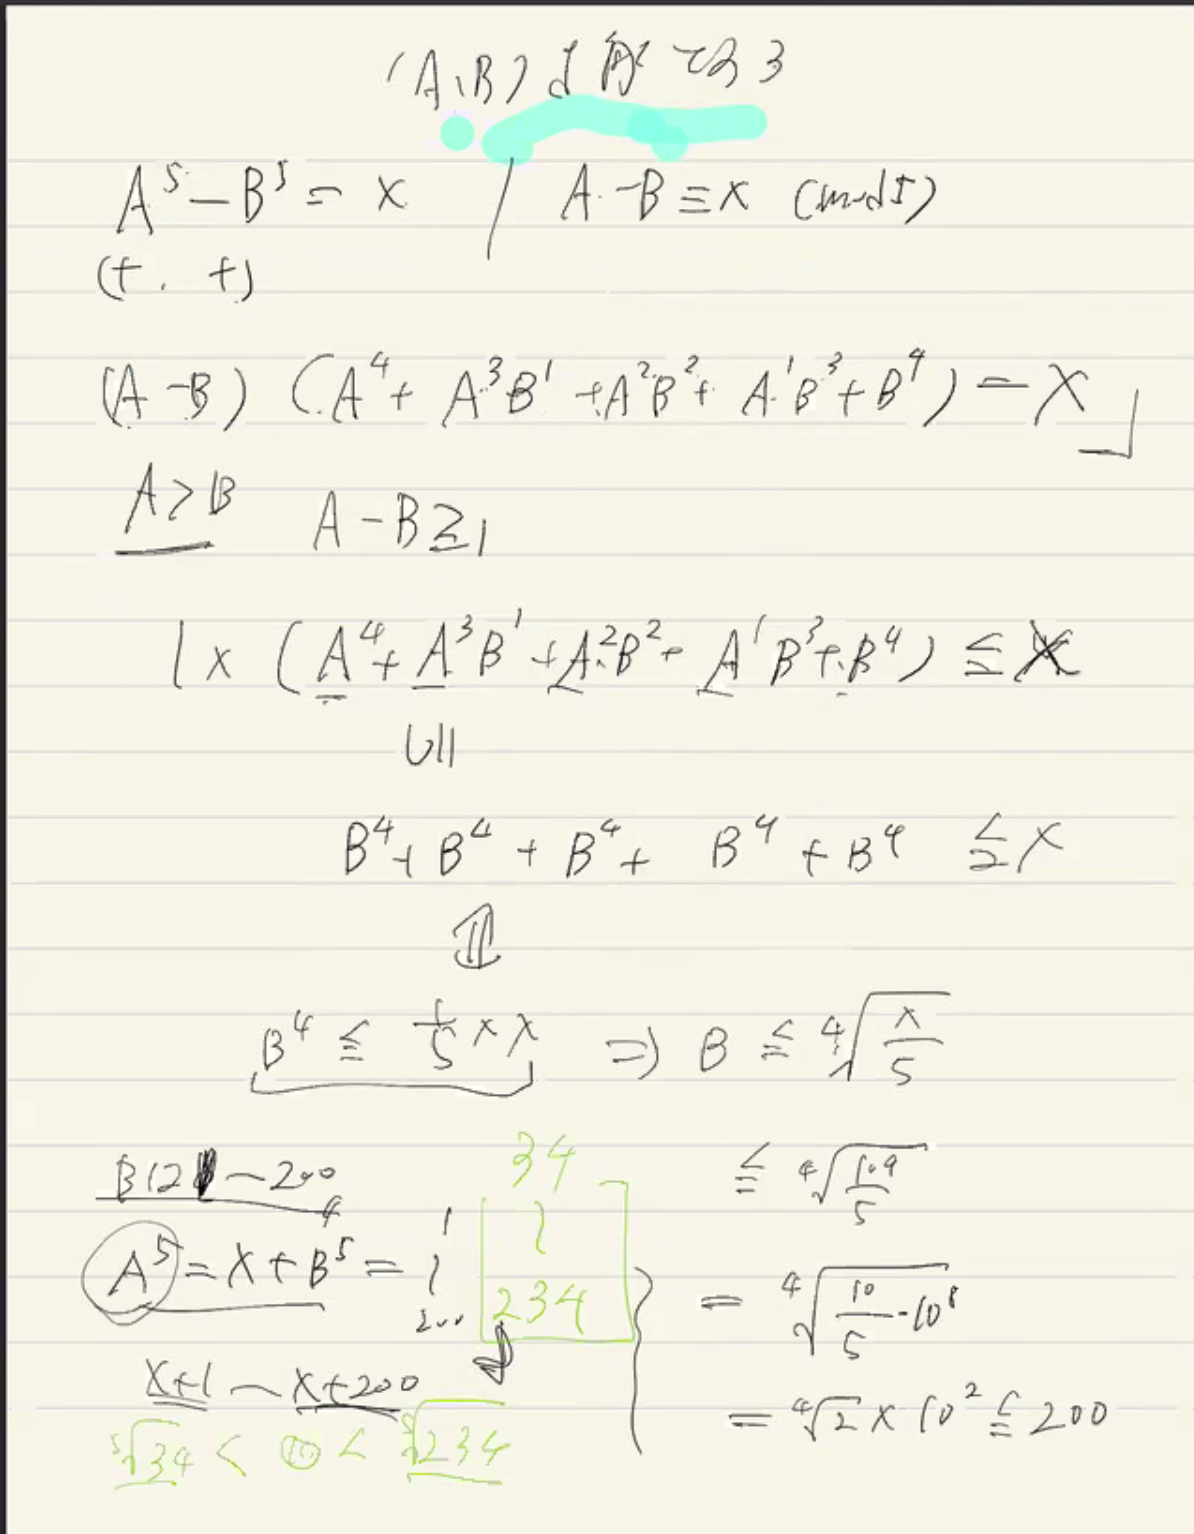 (A,B)
A⁵-B⁵=X / A-B≡X (mod5)
(+. +)
(A-B) (A⁴+A³B¹+A²B²+A¹B³+B⁴)=X
A>B A-B≧1
1x (A⁴+A³B¹+A²B²+A¹B³+B⁴) ≦X
B⁴+B⁴+B⁴+B⁴+B⁴ ≦X
⇓
B⁴≦1/5×X ⇒ B≦⁴√(X/5)
≦⁴√(10⁹/5)
=⁴√(10/5・10⁸)
=⁴√2×10²≦200
B12 ~200
A⁵=X+B⁵= 1 ~ 200
34 ~ 234
X+1 ~ X+200
⁵√34 < < ⁵√234